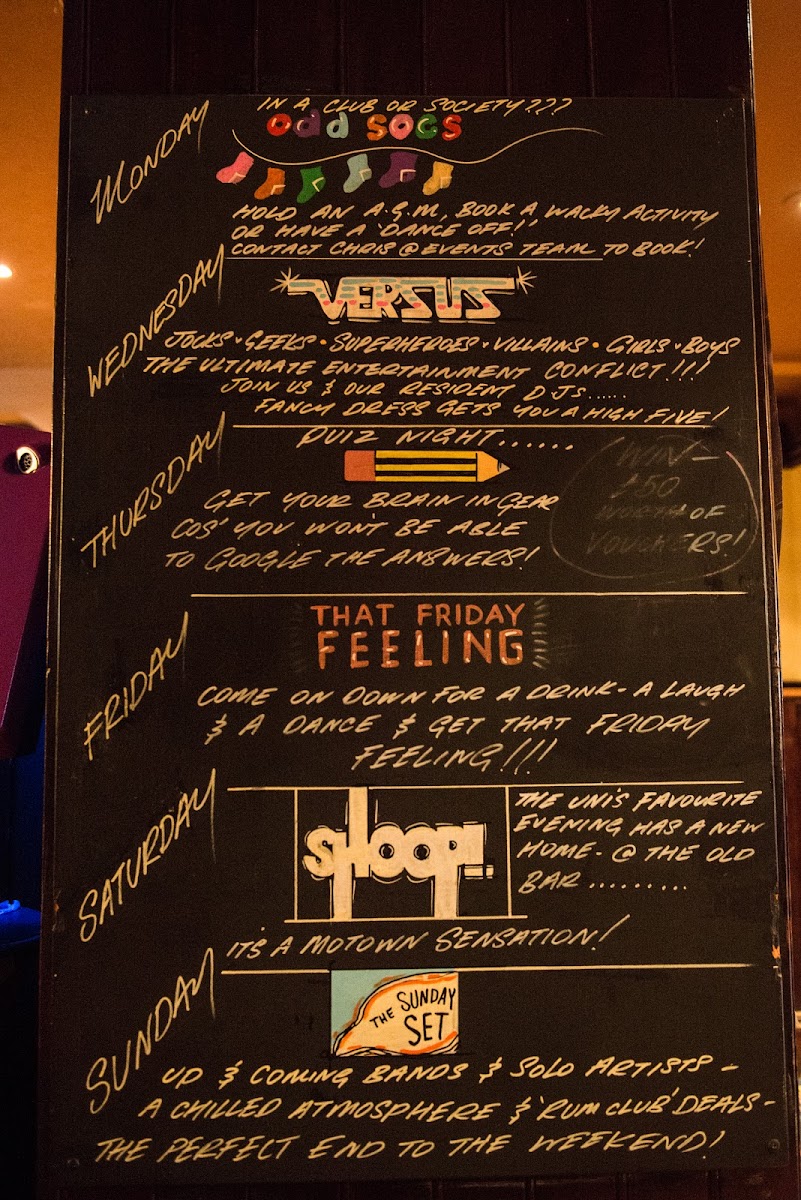 MONDAY
IN A CLUB OR SOCIETY???
odd socs
HOLD AN A.G.M, BOOK A WACKY ACTIVITY
OR HAVE A 'DANCE OFF!'
CONTACT CHRIS @ EVENTS TEAM TO BOOK!
WEDNESDAY
VERSUS
JOCKS v GEEKS • SUPERHEROES v VILLAINS • GIRLS v BOYS
THE ULTIMATE ENTERTAINMENT CONFLICT!!!
JOIN US & OUR RESIDENT DJs......
FANCY DRESS GETS YOU A HIGH FIVE!
THURSDAY
QUIZ NIGHT......
GET YOUR BRAIN IN GEAR
COS' YOU WON'T BE ABLE
TO GOOGLE THE ANSWERS!
WIN -
£50
WORTH OF
VOUCHERS!
FRIDAY
THAT FRIDAY
FEELING
COME ON DOWN FOR A DRINK - A LAUGH
& A DANCE & GET THAT FRIDAY
FEELING!!!
SATURDAY
SHOOP!
THE UNI'S FAVOURITE
EVENING HAS A NEW
HOME - @ THE OLD
BAR .........
IT'S A MOTOWN SENSATION!
SUNDAY
THE SUNDAY
SET
UP & COMING BANDS & SOLO ARTISTS -
A CHILLED ATMOSPHERE & 'RUM CLUB' DEALS -
THE PERFECT END TO THE WEEKEND!